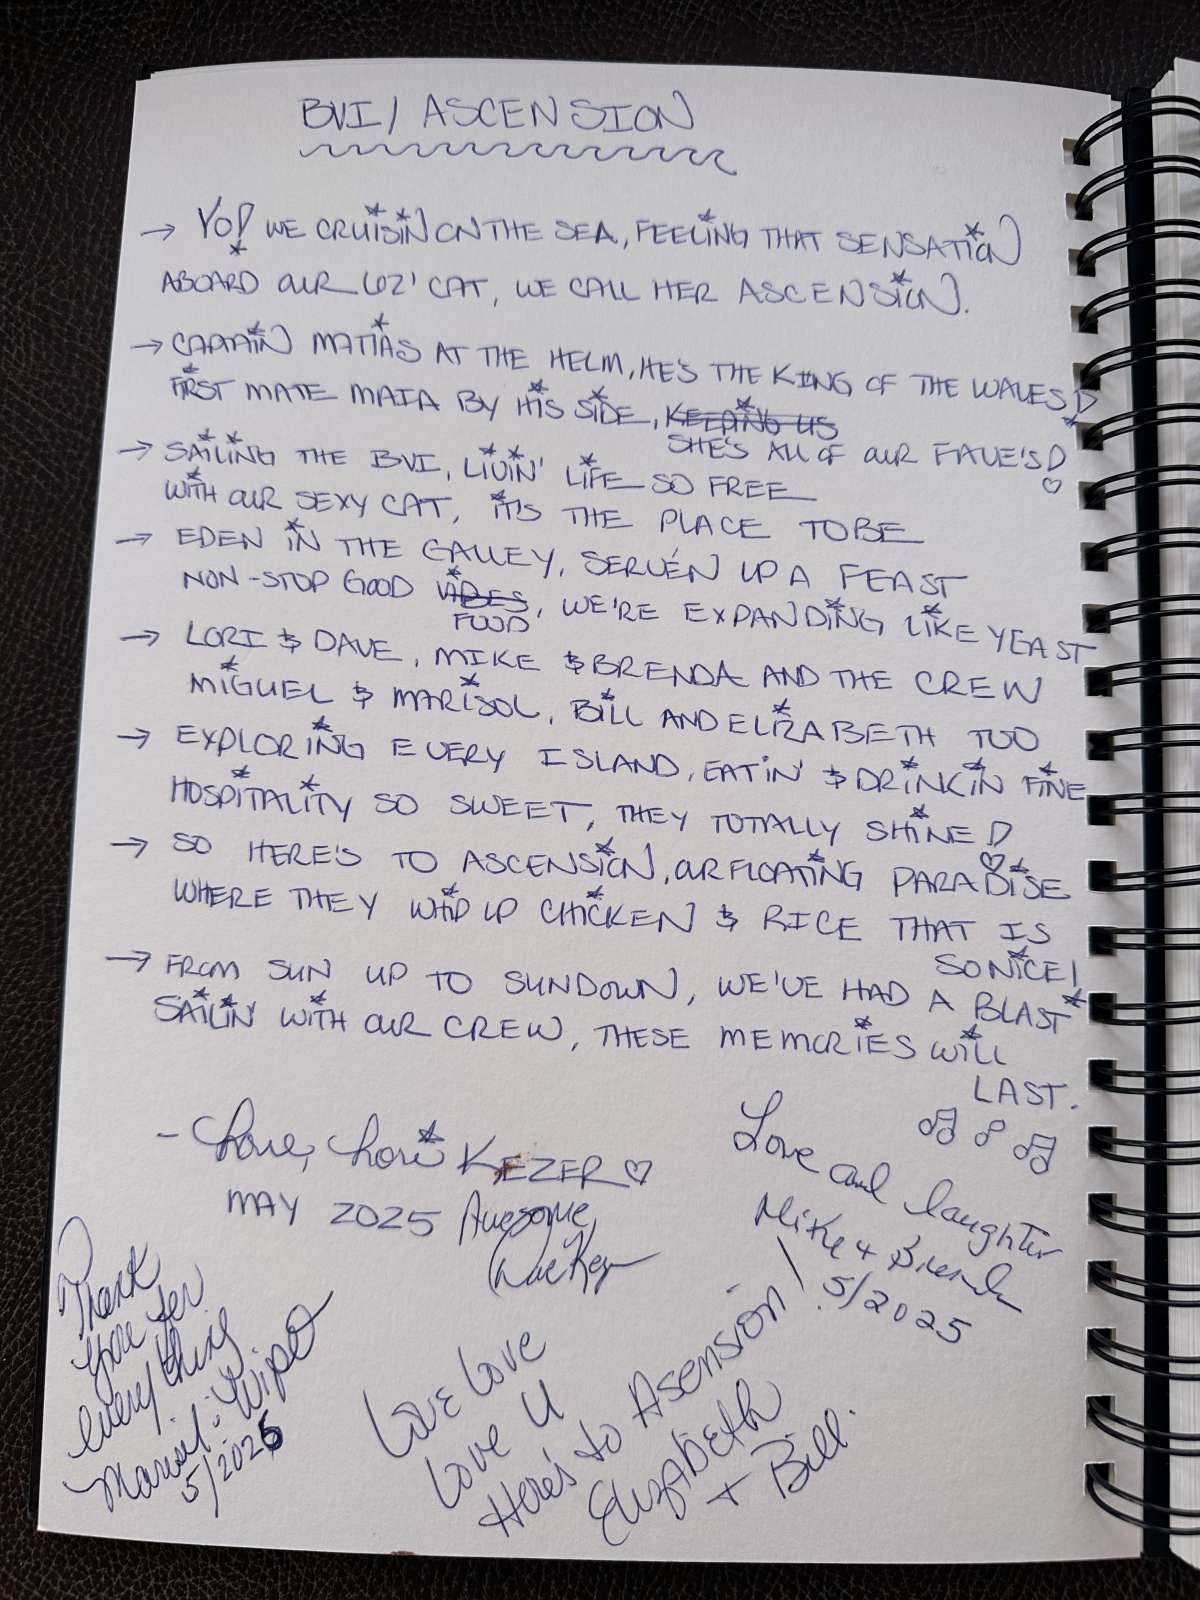 BVI/ ASCENSION
→ YO! WE CRUISIN ON THE SEA, FEELING THAT SENSATION
ABOARD OUR 62' CAT, WE CALL HER ASCENSION.
→ CAPTAIN MATIAS AT THE HELM, HE'S THE KING OF THE WAVES!
FIRST MATE MAIA BY HIS SIDE, KEEPING US
SHE'S ALL OF OUR FAVE'S!
→ SAILING THE BVI, LIVIN' LIFE SO FREE
WITH OUR SEXY CAT, IT'S THE PLACE TO BE
→ EDEN IN THE GALLEY, SERVEN UP A FEAST
NON-STOP GOOD VIBES, WE'RE EXPANDING LIKE YEAST
FOOD
→ LORI & DAVE, MIKE & BRENDA AND THE CREW
MIGUEL & MARISOL, BILL AND ELIZABETH TOO
→ EXPLORING EVERY ISLAND, EATIN' & DRINKIN FINE
HOSPITALITY SO SWEET, THEY TOTALLY SHINE!
→ SO HERE'S TO ASCENSION, OUR FLOATING PARADISE
WHERE THEY WHIP UP CHICKEN & RICE THAT IS
SO NICE!
→ FROM SUN UP TO SUNDOWN, WE'VE HAD A BLAST
SAILIN' WITH OUR CREW, THESE MEMORIES WILL
LAST.
- Love, Lori KEZER ♡
MAY 2025
Awesome
Dave
Love and laughter
Mike + Brenda
5/2025
Thank
you for
everything
Marisol
5/2025
Love Love
Love U
Here's to Asension!
Elizabeth
+ Bill.